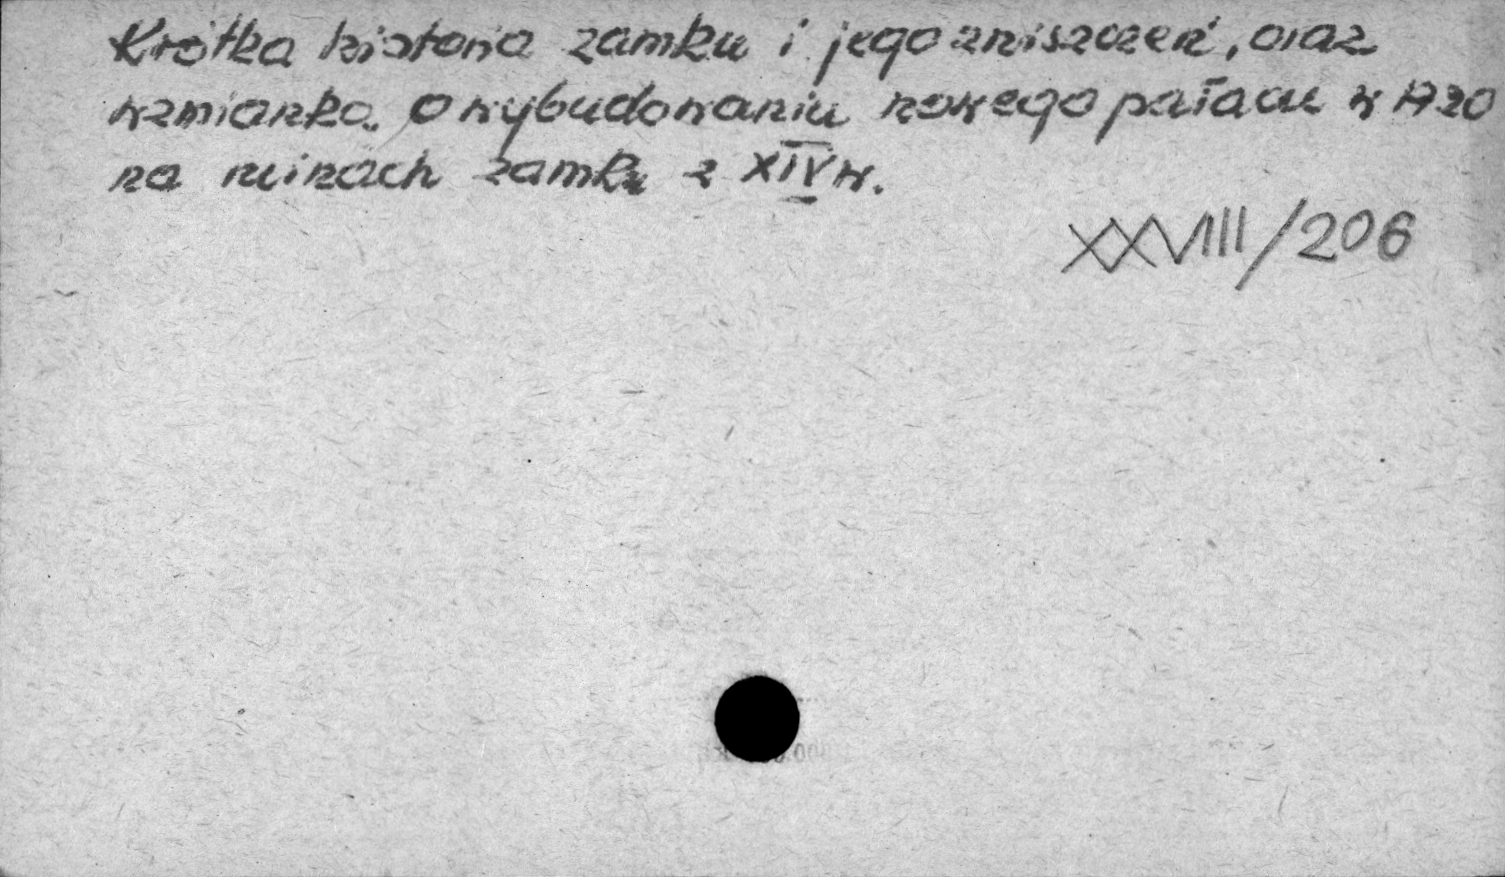 Krótka historia zamku i jego zniszczeń, oraz
wzmianka o wybudowaniu nowego pałacu w 1720
na ruinach zamku z XIV w.
XXVIII/206